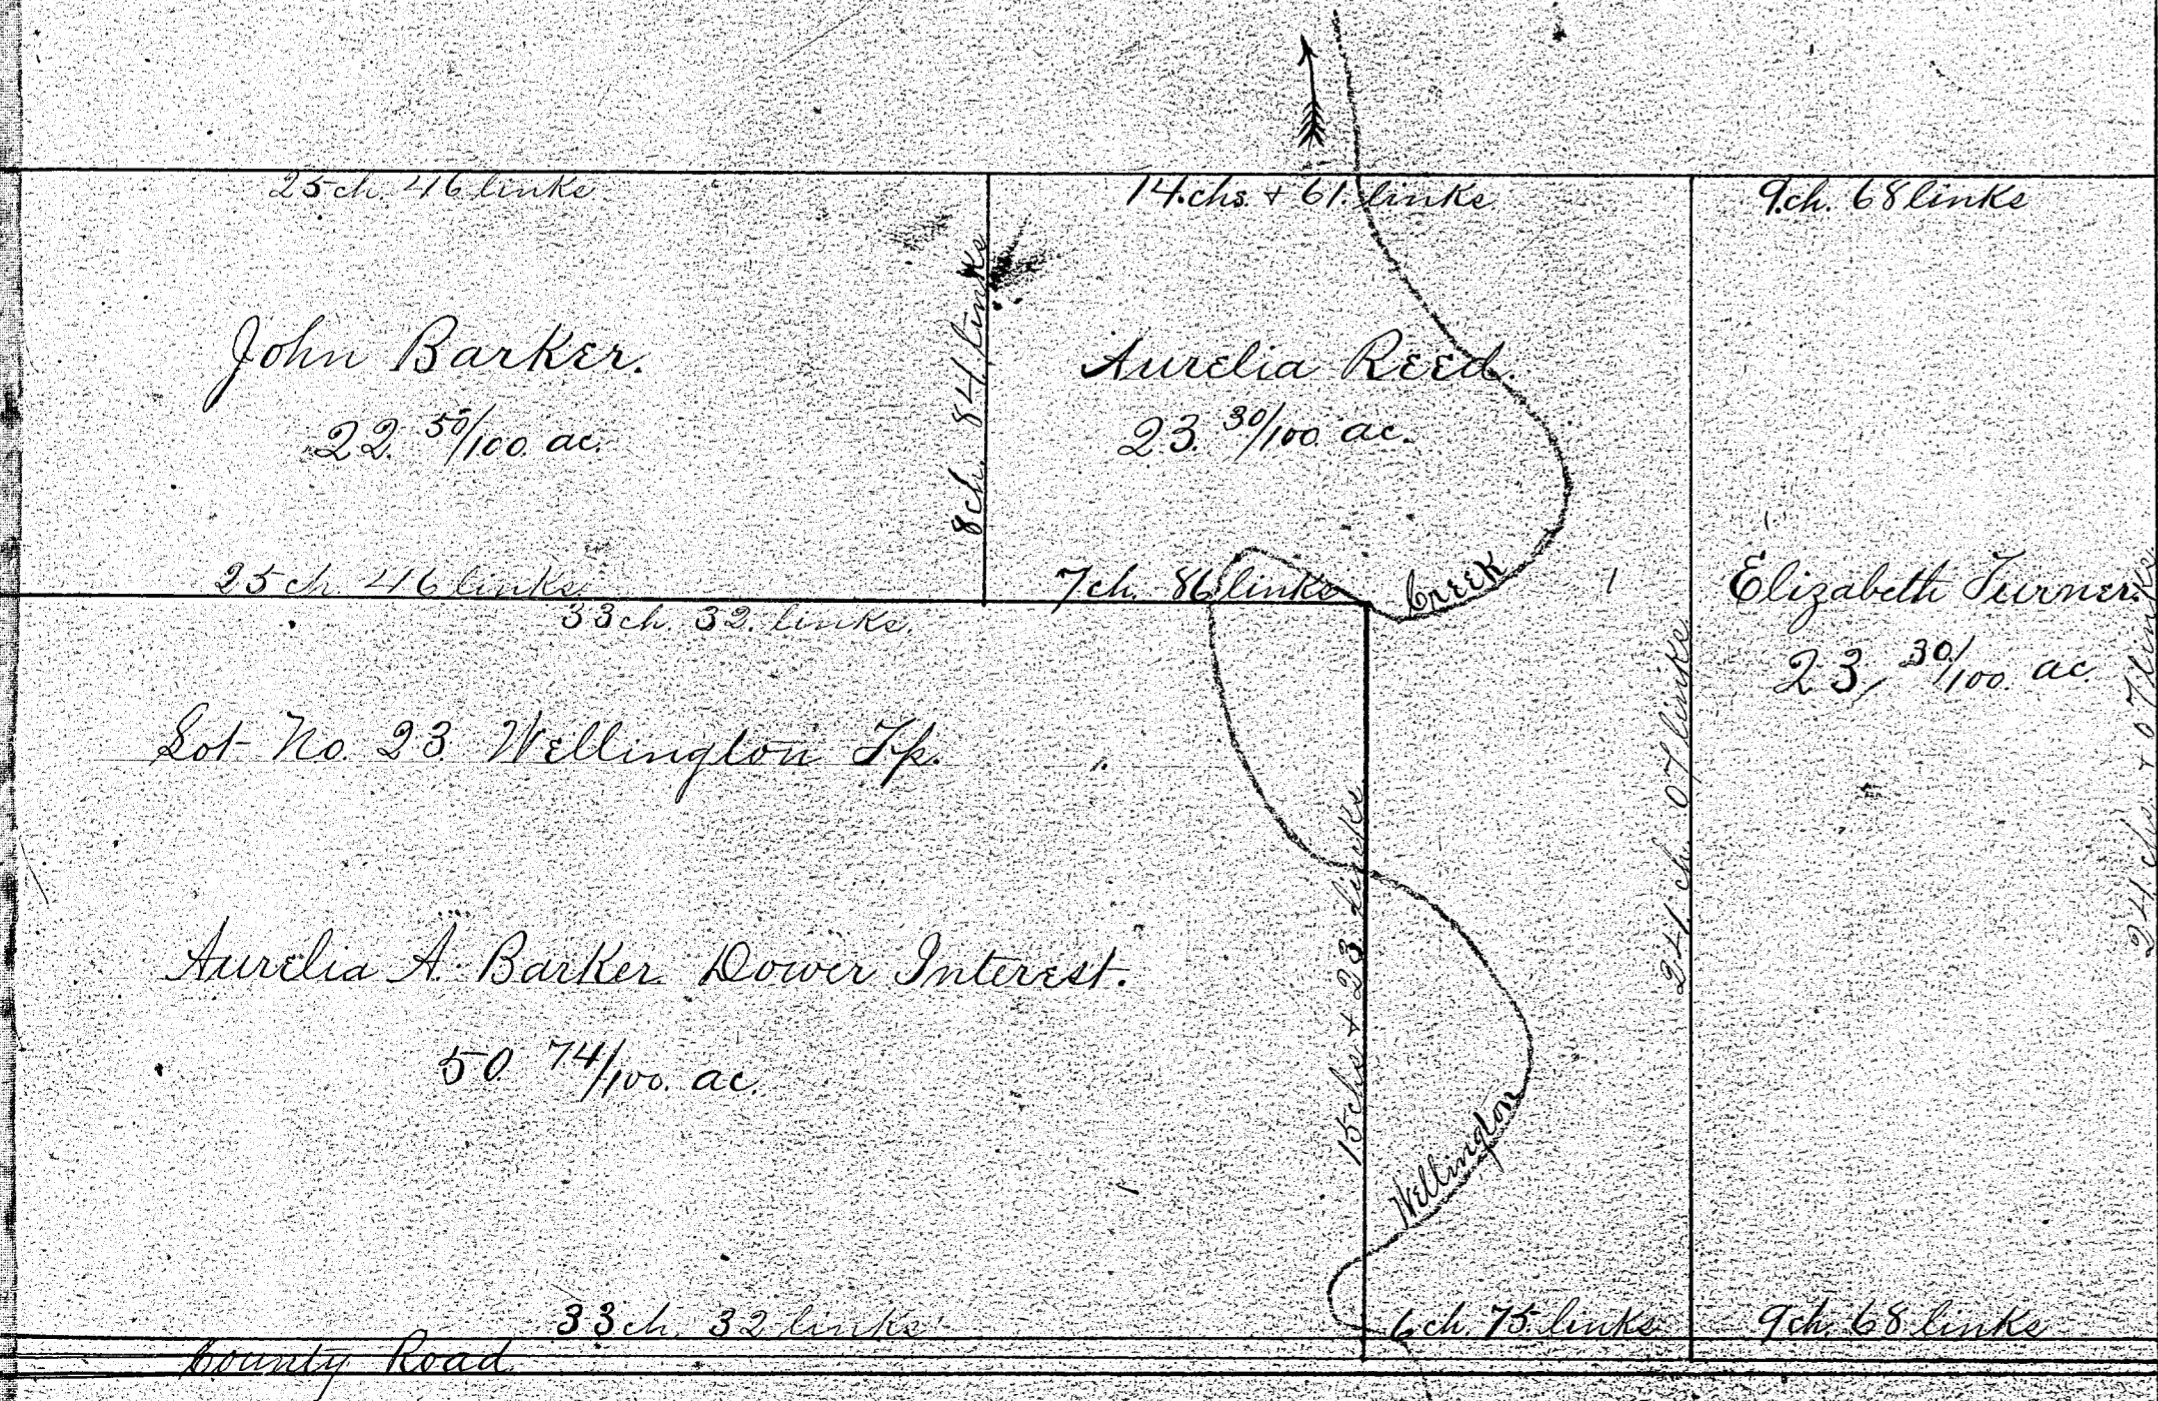 25 ch. 46 links
14. chs. + 61. links
9. ch. 68 links
John Barker.
22. 50/100. ac.
8 ch. 84 links
Aurelia Reed.
23. 30/100. ac.
25 ch. 46 links
7 ch. 86 links
Creek
33 ch. 32. links.
Elizabeth Turner.
23, 30/100. ac.
24 ch. 07 links
24 chs. + 07 links
Lot No. 23. Wellington Tp.
15 chs + 23 links
Aurelia A. Barker. Dower Interest.
50. 74/100. ac.
Wellington
33 ch. 32 links
6 ch. 75 links
9 ch. 68 links
County Road.